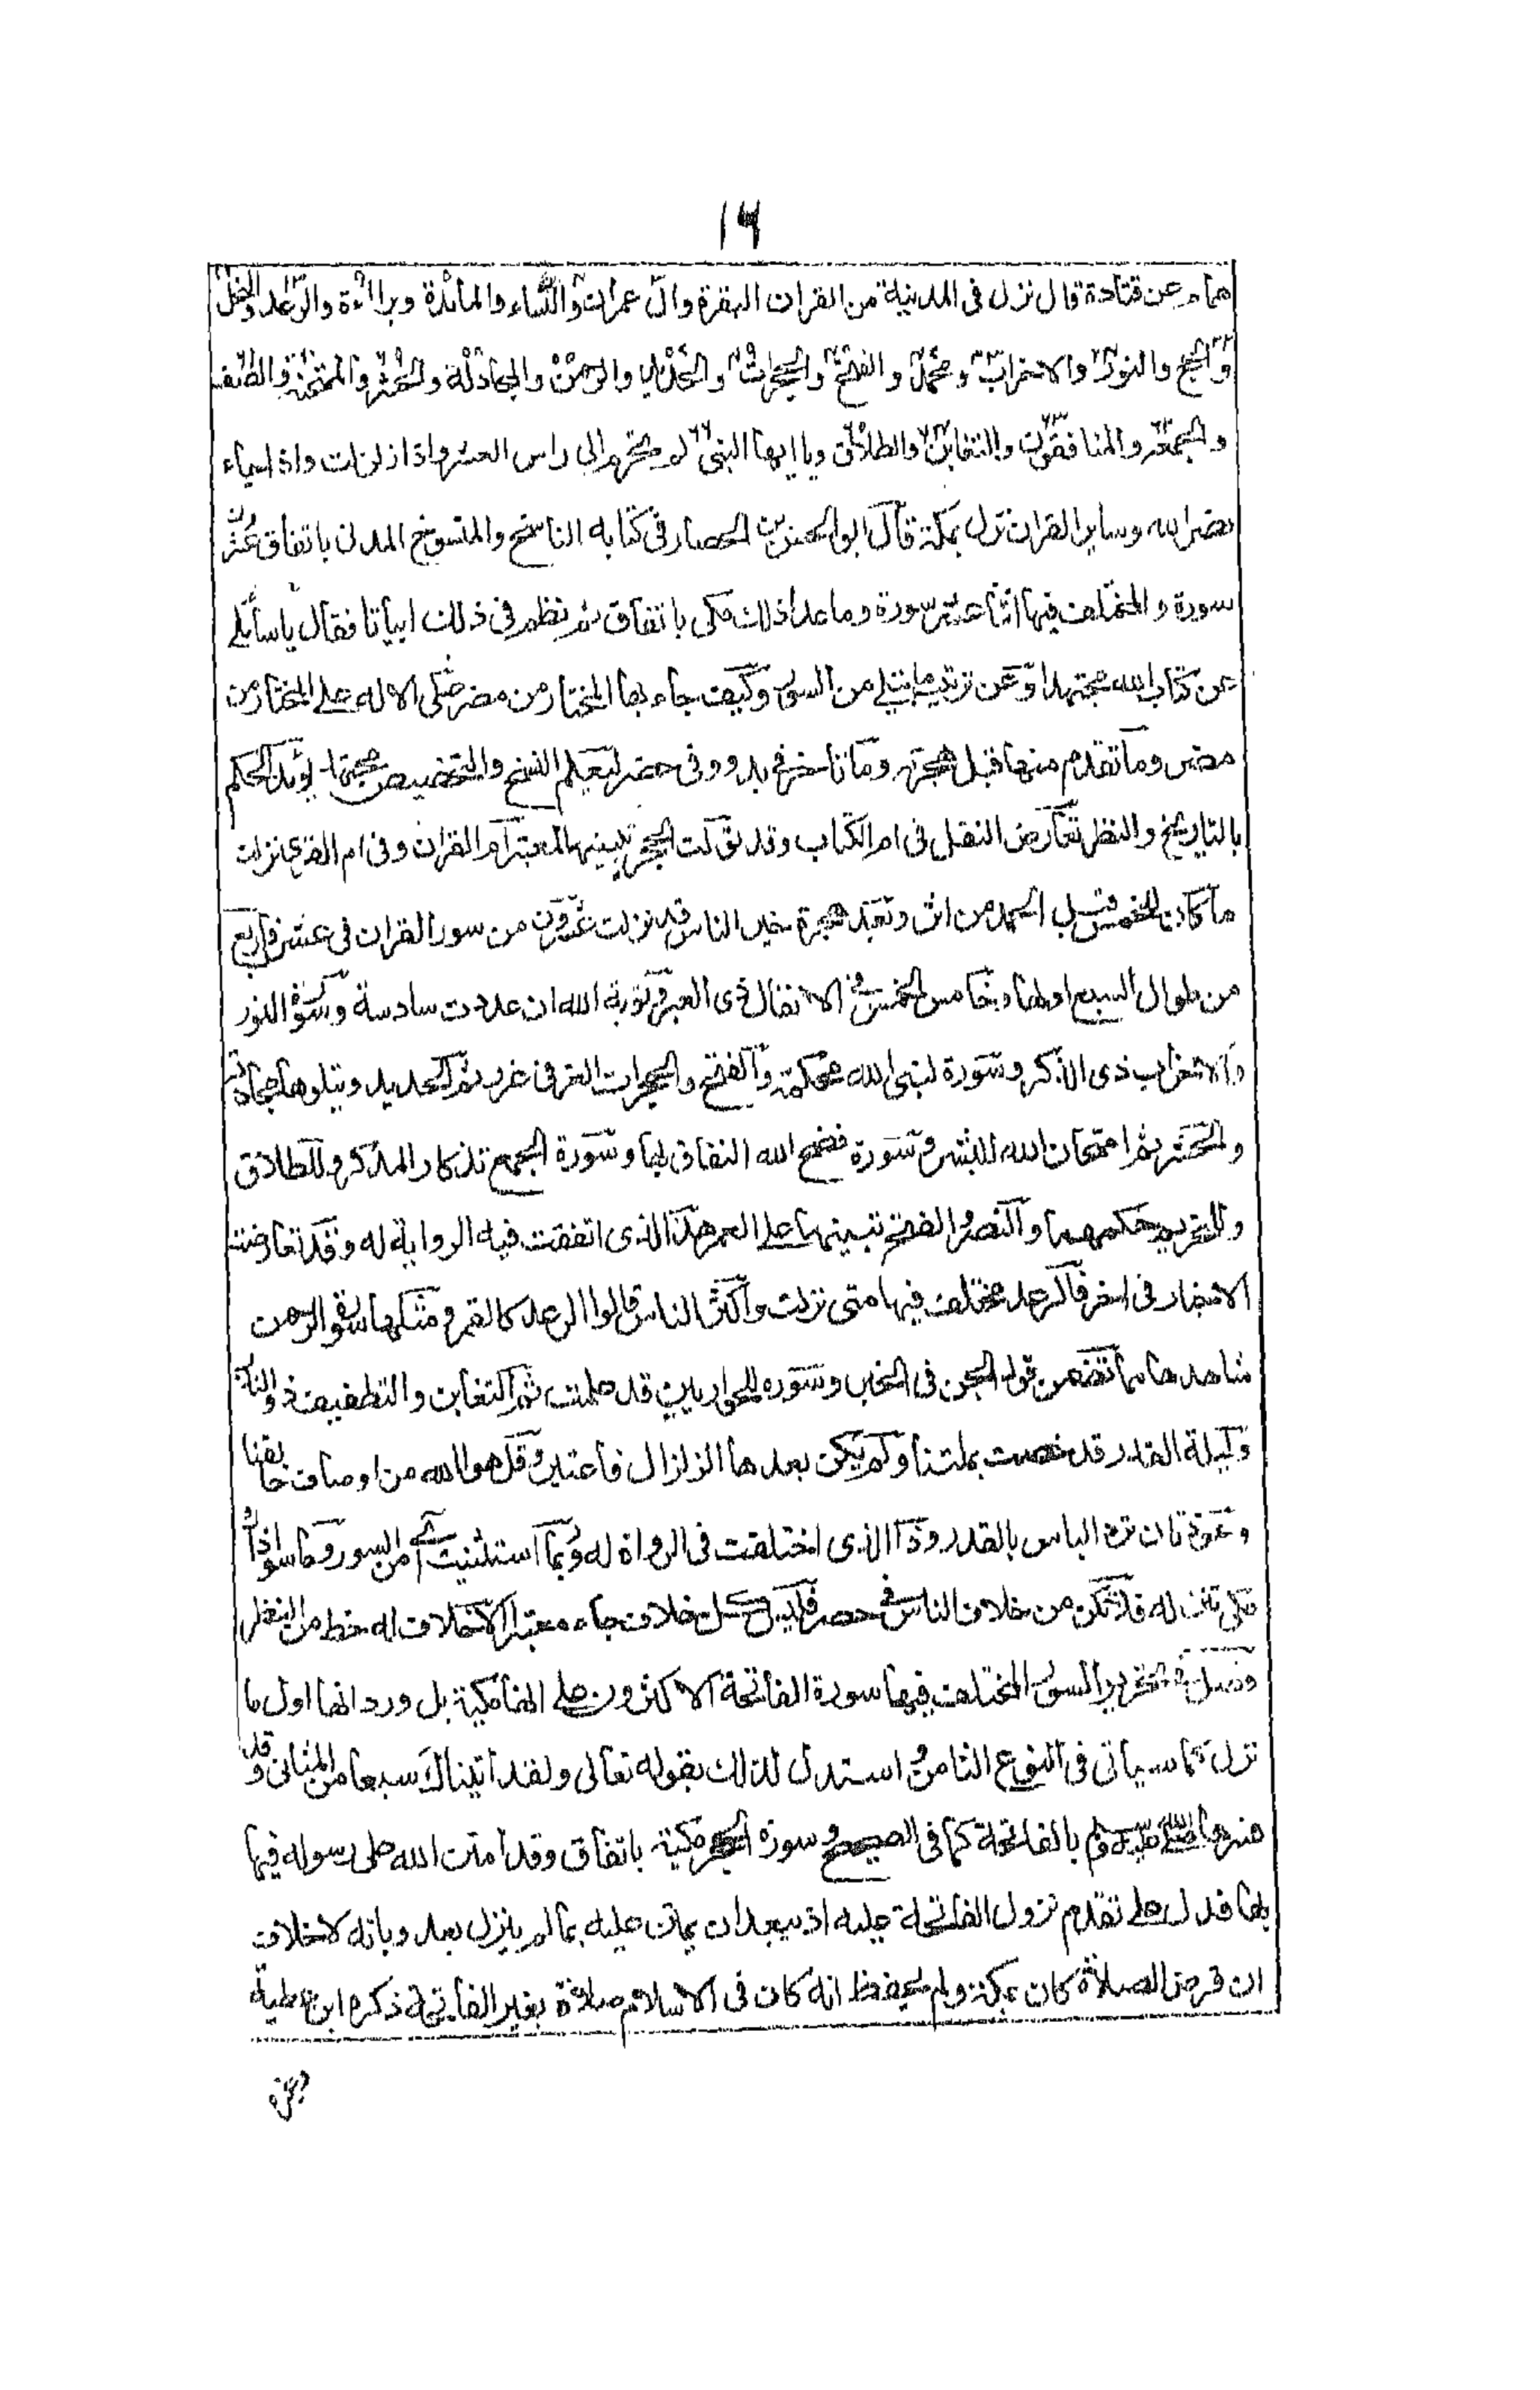 ١٦
همام عن قتادة قال نزل فى المدينة من القران البقرة وال عمران والنساء والمائدة وبراءة والرعد والنحل
والحج والنور والاحزاب ومحمد والفتح والحجرات والحديد والرحمن والمجادلة والحشر والممتحنة والصف
والجمعة والمنافقون والتغابن والطلاق ويا ايها النبى لم تحرم الى راس العشر واذا زلزلت واذا جاء
نصر الله وساير القران نزل بمكة قال ابو الحسن بن الحصار فى كتابه الناسخ والمنسوخ المدنى باتفاق عشرون
سورة والمختلف فيها اثنا عشر سورة وما عدا ذلك مكى باتفاق ثم نظم فى ذلك ابياتا فقال يا سايلى
عن كتاب الله مجتهدا وعن ترتيب ما يتلى من السور وكيف جاء بها المختار من مضر صلى الاله على المختار من
مضر وما تقدم منها قبل هجرته وما تاخر فى بدو وفى حضر ليعلم النسخ والتخصيص مجتهد يؤيد الحكم
بالتاريخ والنظر تعارض النقل فى ام الكتاب وقد تؤلت الحجر تبيينها لمعتبر ام القران وفى ام القرى نزلت
ما كان للخمس قبل الحمد من اثر وبعد هجرة خير الناس قد نزلت عشرون من سور القران فى عشر فاربع
من طوال السبع اولها وخامس الخمس فى الانفال ذى العبر وتوبة الله ان عدت سادسة وسورة النور
والاحزاب ذى الذكر وسورة لنبى الله محكمة والفتح والحجرات الغر فى غرر ثم الحديد ويتلوها مجادلة
والحشر ثم امتحان الله للبشر وسورة فضح الله النفاق بها وسورة الجمع تذكار المدكر وللطلاق
وللتحريم حكمهما والنصر والفتح تنبيها على العمر هذا الذى اتفقت فيه الرواية له وقد تعارضت
الاخبار فى اخر فالرعد مختلف فيها متى نزلت واكثر الناس قالوا الرعد كالقمر ومثلها سورة الرحمن
شاهدها مما تضمن قول الجن فى الخبر وسورة للحواريين قد علمت ثم التغابن والتطفيف ذو النذر
وليلة القدر قد خصت بملتنا ولم يكن بعدها الزلزال فاعتبر وقل هو الله من اوصاف خالقنا
وعوذتان ترد الباس بالقدر وذا الذى اختلفت فى الرواة له وربما استثنيت آى من السور وما سوى ذاك
مكى تنزله فلا تكن من خلاف الناس فى حصر فليس كل خلاف جاء معتبرا الا خلاف له حظ من النظر
فصل فى تحرير السور المختلف فيها سورة الفاتحة الاكثرون على انها مكية بل ورد انها اول ما
نزل كما سياتى فى النوع الثامن واستدل لذلك بقوله تعالى ولقد اتيناك سبعا من المثانى وقد
فسرها صلى الله عليه وسلم بالفاتحة كما فى الصحيح وسورة الحجر مكية باتفاق وقد امتن الله على رسوله فيها
بها فدل على تقدم نزول الفاتحة عليه اذ يبعد ان يمتن عليه بما لم ينزل بعد وبانه لا خلاف
ان فرض الصلاة كان بمكة ولم يحفظ انه كان فى الاسلام صلاة بغير الفاتحة ذكره ابن عطية
وغيره